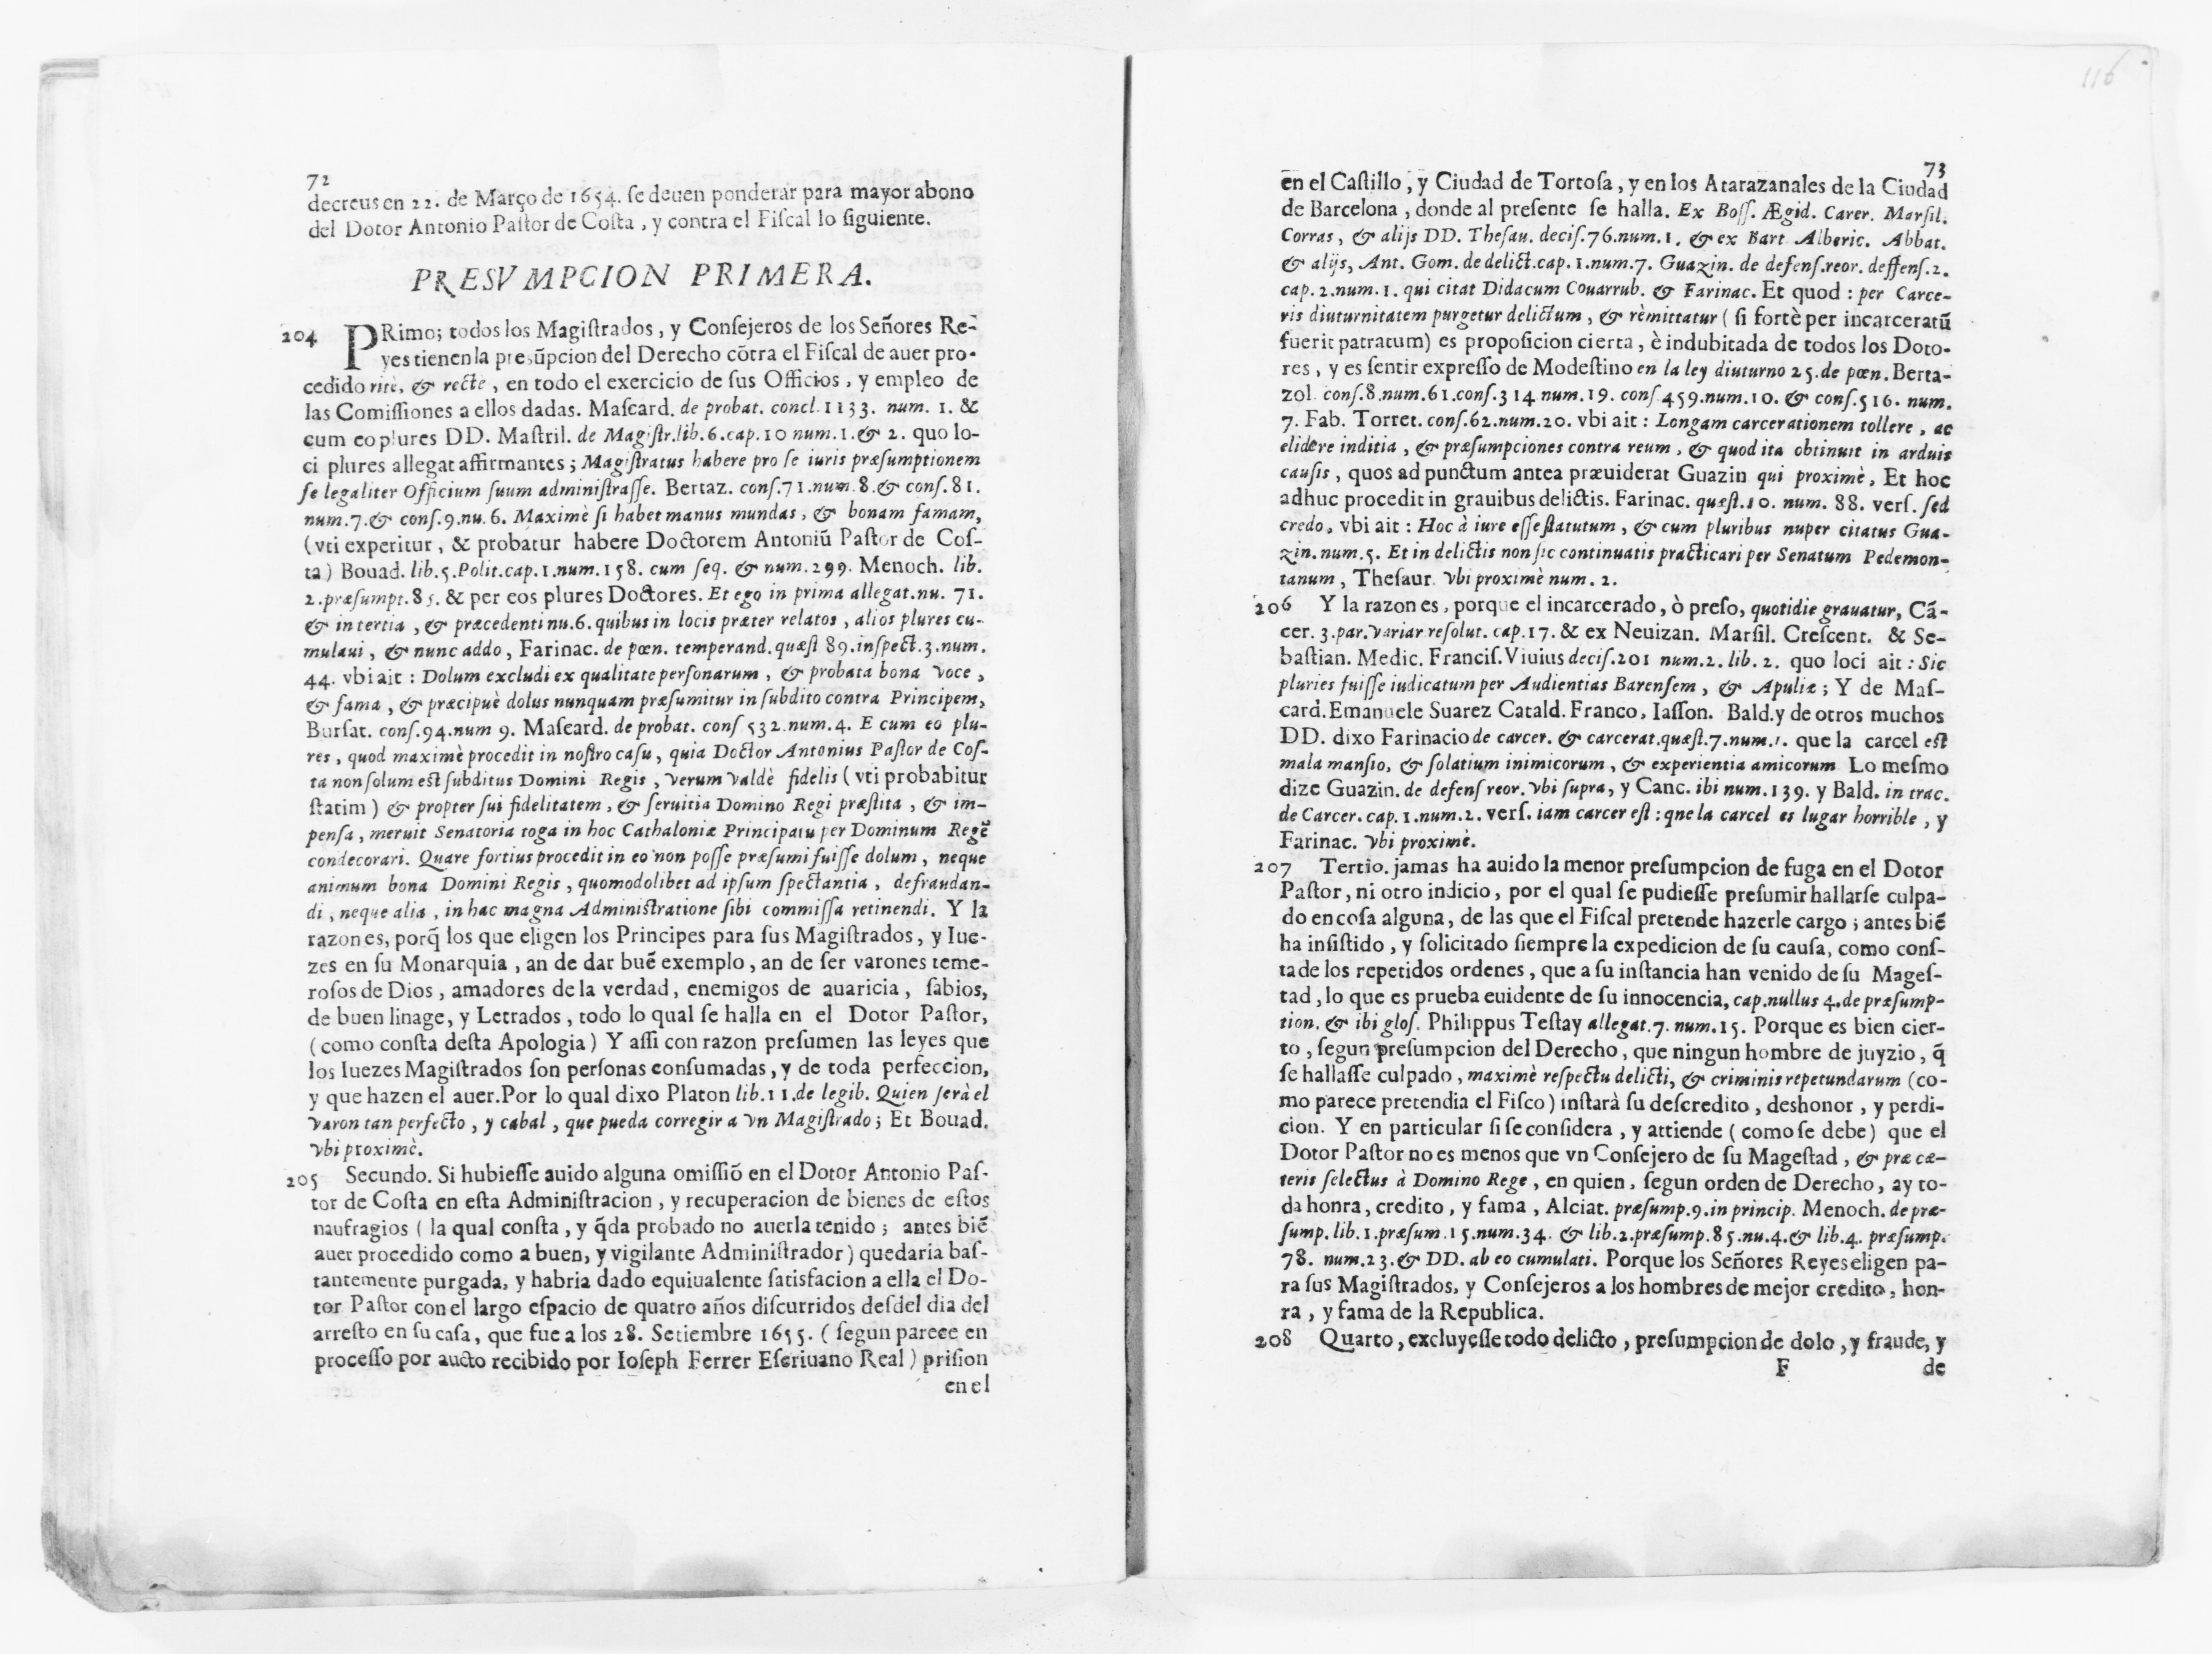 72
decreus en 22. de Março de 1654. se deuen ponderar para mayor abono
del Dotor Antonio Pastor de Costa, y contra el Fiscal lo siguiente.
PRESVMPCION PRIMERA.
204 PRimo; todos los Magistrados, y Consejeros de los Señores Re-
yes tienen la presũpcion del Derecho cõtra el Fiscal de auer pro-
cedido ritè, & recte, en todo el exercicio de sus Officios, y empleo de
las Comissiones a ellos dadas. Mascard. de probat. concl. 1133. num. 1. &
cum eo plures DD. Mastril. de Magistr. lib. 6. cap. 10 num. 1. & 2. quo lo-
ci plures allegat affirmantes; Magistratus habere pro se iuris præsumptionem
se legaliter Officium suum administrasse. Bertaz. cons. 71. num. 8. & cons. 81.
num. 7. & cons. 9. nu. 6. Maximè si habet manus mundas, & bonam famam,
(vti experitur, & probatur habere Doctorem Antoniũ Pastor de Cos-
ta) Bouad. lib. 5. Polit. cap. 1. num. 158. cum seq. & num. 299. Menoch. lib.
2. præsumpt. 85. & per eos plures Doctores. Et ego in prima allegat. nu. 71.
& in tertia, & præcedenti nu. 6. quibus in locis præter relatos, alios plures cu-
mulaui, & nunc addo, Farinac. de pœn. temperand. quæst 89. inspect. 3. num.
44. vbi ait: Dolum excludi ex qualitate personarum, & probata bona voce,
& fama, & præcipuè dolus nunquam præsumitur in subdito contra Principem,
Bursat. cons. 94. num 9. Mascard. de probat. cons 532. num. 4. E cum eo plu-
res, quod maximè procedit in nostro casu, quia Doctor Antonius Pastor de Cos-
ta non solum est subditus Domini Regis, verum valdè fidelis (vti probabitur
statim) & propter sui fidelitatem, & seruitia Domino Regi præstita, & im-
pensa, meruit Senatoria toga in hoc Cathaloniæ Principatu per Dominum Regẽ
condecorari. Quare fortius procedit in eo non posse præsumi fuisse dolum, neque
animum bona Domini Regis, quomodolibet ad ipsum spectantia, defraudan-
di, neque alia, in hac magna Administratione sibi commissa retinendi. Y la
razon es, porq̃ los que eligen los Principes para sus Magistrados, y Iue-
zes en su Monarquia, an de dar buẽ exemplo, an de ser varones teme-
rosos de Dios, amadores de la verdad, enemigos de auaricia, sabios,
de buen linage, y Letrados, todo lo qual se halla en el Dotor Pastor,
(como consta desta Apologia) Y assi con razon presumen las leyes que
los Iuezes Magistrados son personas consumadas, y de toda perfeccion,
y que hazen el auer. Por lo qual dixo Platon lib. 11. de legib. Quien serà el
varon tan perfecto, y cabal, que pueda corregir a vn Magistrado; Et Bouad.
vbi proximè.
205 Secundo. Si hubiesse auido alguna omissiõ en el Dotor Antonio Pas-
tor de Costa en esta Administracion, y recuperacion de bienes de estos
naufragios (la qual consta, y q̃da probado no auerla tenido; antes biẽ
auer procedido como a buen, y vigilante Administrador) quedaria bas-
tantemente purgada, y habria dado equiualente satisfacion a ella el Do-
tor Pastor con el largo espacio de quatro años discurridos desdel dia del
arresto en su casa, que fue a los 28. Setiembre 1655. (segun parece en
processo por aucto recibido por Ioseph Ferrer Escriuano Real) prision
en el
116
73
en el Castillo, y Ciudad de Tortosa, y en los Atarazanales de la Ciudad
de Barcelona, donde al presente se halla. Ex Boss. Ægid. Carer. Marsil.
Corras, & alijs DD. Thesau. decis. 76. num. 1. & ex Bart Alberic. Abbat.
& alijs, Ant. Gom. de delict. cap. 1. num. 7. Guazin. de defens. reor. deffens. 2.
cap. 2. num. 1. qui citat Didacum Couarrub. & Farinac. Et quod: per Carce-
ris diuturnitatem purgetur delictum, & rèmittatur (si fortè per incarceratũ
fuerit patratum) es proposicion cierta, è indubitada de todos los Doto-
res, y es sentir expresso de Modestino en la ley diuturno 25. de pœn. Berta-
zol. cons. 8. num. 61. cons. 314 num. 19. cons 459. num. 10. & cons. 516. num.
7. Fab. Torret. cons. 62. num. 20. vbi ait: Longam carcerationem tollere, ac
elidere inditia, & præsumpciones contra reum, & quod ita obtinuit in arduis
causis, quos ad punctum antea præuiderat Guazin qui proximè, Et hoc
adhuc procedit in grauibus delictis. Farinac. quæst. 10. num. 88. vers. sed
credo, vbi ait: Hoc à iure esse statutum, & cum pluribus nuper citatus Gua-
zin. num. 5. Et in delictis non sic continuatis practicari per Senatum Pedemon-
tanum, Thesaur. vbi proximè num. 2.
206 Y la razon es, porque el incarcerado, ò preso, quotidie grauatur, Cã-
cer. 3. par. variar resolut. cap. 17. & ex Neuizan. Marsil. Crescent. & Se-
bastian. Medic. Francis. Viuius decis. 201 num. 2. lib. 2. quo loci ait: Sic
pluries fuisse iudicatum per Audientias Barensem, & Apuliæ; Y de Mas-
card. Emanuele Suarez Catald. Franco, Iasson. Bald. y de otros muchos
DD. dixo Farinacio de carcer. & carcerat. quæst. 7. num. 1. que la carcel est
mala mansio, & solatium inimicorum, & experientia amicorum Lo mesmo
dize Guazin. de defens reor. vbi supra, y Canc. ibi num. 139. y Bald. in trac.
de Carcer. cap. 1. num. 2. vers. iam carcer est: qne la carcel es lugar horrible, y
Farinac. vbi proximè.
207 Tertio. jamas ha auido la menor presumpcion de fuga en el Dotor
Pastor, ni otro indicio, por el qual se pudiesse presumir hallarse culpa-
do en cosa alguna, de las que el Fiscal pretende hazerle cargo; antes biẽ
ha insistido, y solicitado siempre la expedicion de su causa, como cons-
ta de los repetidos ordenes, que a su instancia han venido de su Mages-
tad, lo que es prueba euidente de su innocencia, cap. nullus 4. de præsump-
tion. & ibi glos. Philippus Testay allegat. 7. num. 15. Porque es bien cier-
to, segun presumpcion del Derecho, que ningun hombre de juyzio, q̃
se hallasse culpado, maximè respectu delicti, & criminis repetundarum (co-
mo parece pretendia el Fisco) instarà su descredito, deshonor, y perdi-
cion. Y en particular si se considera, y attiende (como se debe) que el
Dotor Pastor no es menos que vn Consejero de su Magestad, & præ cæ-
teris selectus à Domino Rege, en quien, segun orden de Derecho, ay to-
da honra, credito, y fama, Alciat. præsump. 9. in princip. Menoch. de præ-
sump. lib. 1. præsum. 15. num. 34. & lib. 2. præsump. 85. nu. 4. & lib. 4. præsump.
78. num. 23. & DD. ab eo cumulati. Porque los Señores Reyes eligen pa-
ra sus Magistrados, y Consejeros a los hombres de mejor credito, hon-
ra, y fama de la Republica.
208 Quarto, excluyesse todo delicto, presumpcion de dolo, y fraude, y
F de